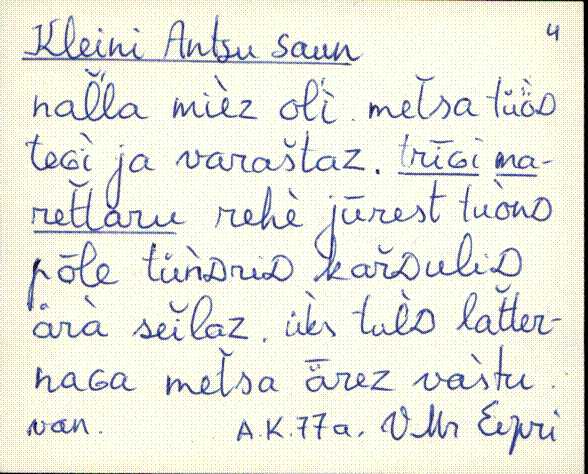 4
Kleini Antsu saun
nal̆l̆a mièz ol̆ì. metsa tüö̀D
teGì ja varaštaz. trīGi ma-
ret̆l̆aru rehè jūrest tuònD
pōle tüǹDriD kar̆DuliD
ärà seĭlaz. üks tul̀D lat̆ter-
naGa metsa ǟrez vàstu.
van. A.K. 77 a. VMr Eipri